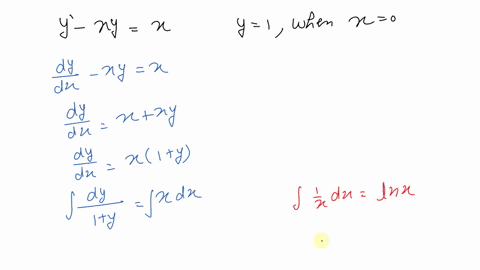 y' - xy = x    y = 1, when x = 0
dy/dx - xy = x
dy/dx = x + xy
dy/dx = x(1+y)
∫ dy/1+y = ∫ x dx    ∫ 1/x dx = ln x